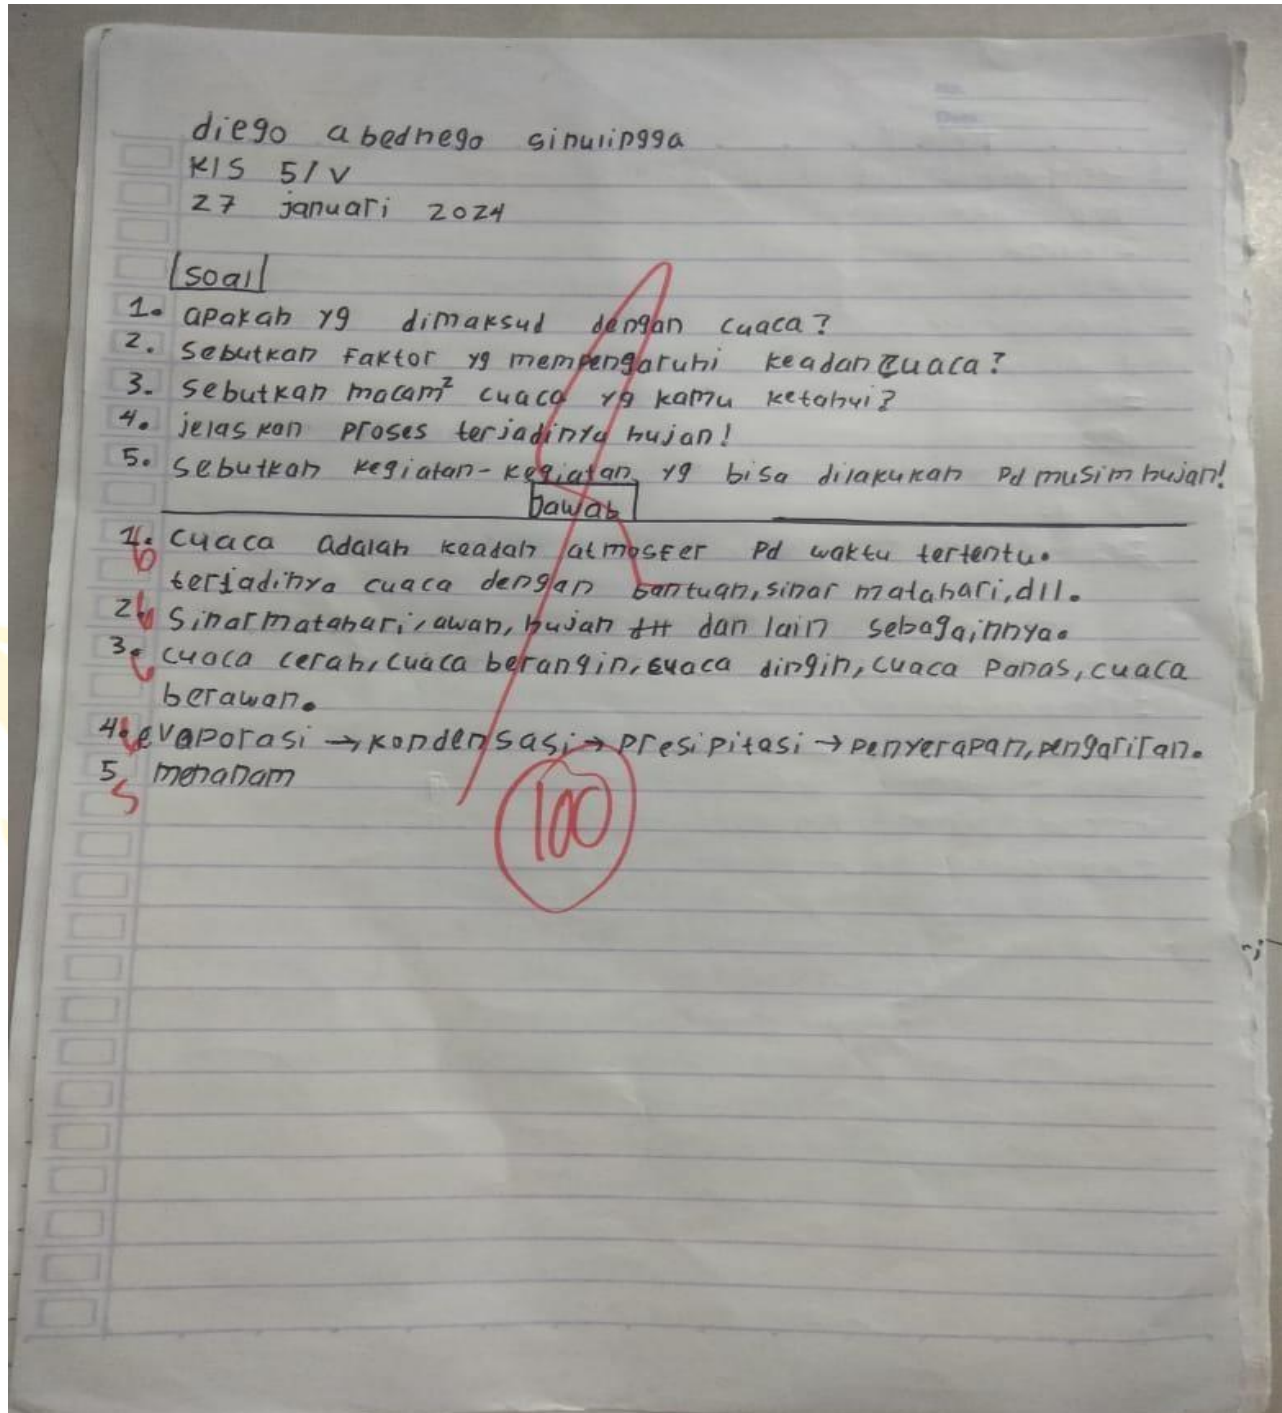 diego abednego sinulingga
Kls 5/V
27 januari 2024
soal
1. apakah yg dimaksud dengan cuaca?
2. Sebutkan Faktor yg mempengaruhi keadan cuaca?
3. sebutkan macam² cuaca yg kamu ketahui?
4. jelaskan proses terjadinya hujan!
5. sebutkan kegiatan-kegiatan yg bisa dilakukan Pd musim hujan!
Jawab
1. cuaca adalah keadah atmosfer Pd waktu tertentu.
terjadinya cuaca dengan bantuan, sinar matahari, dll.
2. Sinar matahari, awan, hujan dan lain sebagainnya.
3. cuaca cerah, cuaca berangin, cuaca dingin, cuaca Panas, cuaca
berawan.
4. evaporasi → kondensasi → Presipitasi → penyerapan, pengariran.
5 menanam
100